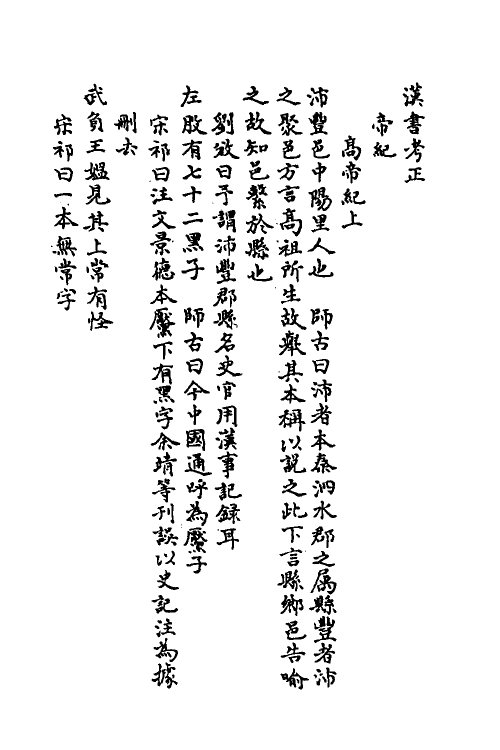 漢書考正
帝紀
高帝紀上
沛豐邑中陽里人也　師古曰沛者本秦泗水郡之属縣豐者沛
之聚邑方言高祖所生故舉其本稱以說之此下言縣鄉邑告喻
之故知邑繫於縣也
劉攽曰予謂沛豐郡縣名史官用漢事記録耳
左股有七十二黑子　師古曰今中國通呼為黡子
宋祁曰注文景德本黡下有黑字余靖等刊誤以史記注為據
刪去
武負王媼見其上常有怪
宋祁曰一本無常字